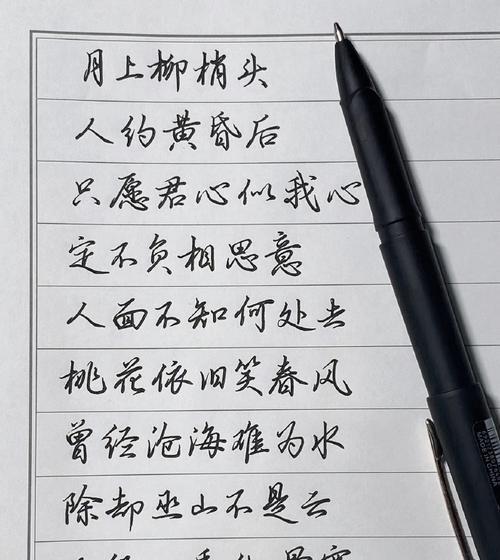 月上柳梢头
人约黄昏后
只愿君心似我心
定不负相思意
人面不知何处去
桃花依旧笑春风
曾经沧海难为水
除却巫山不是云